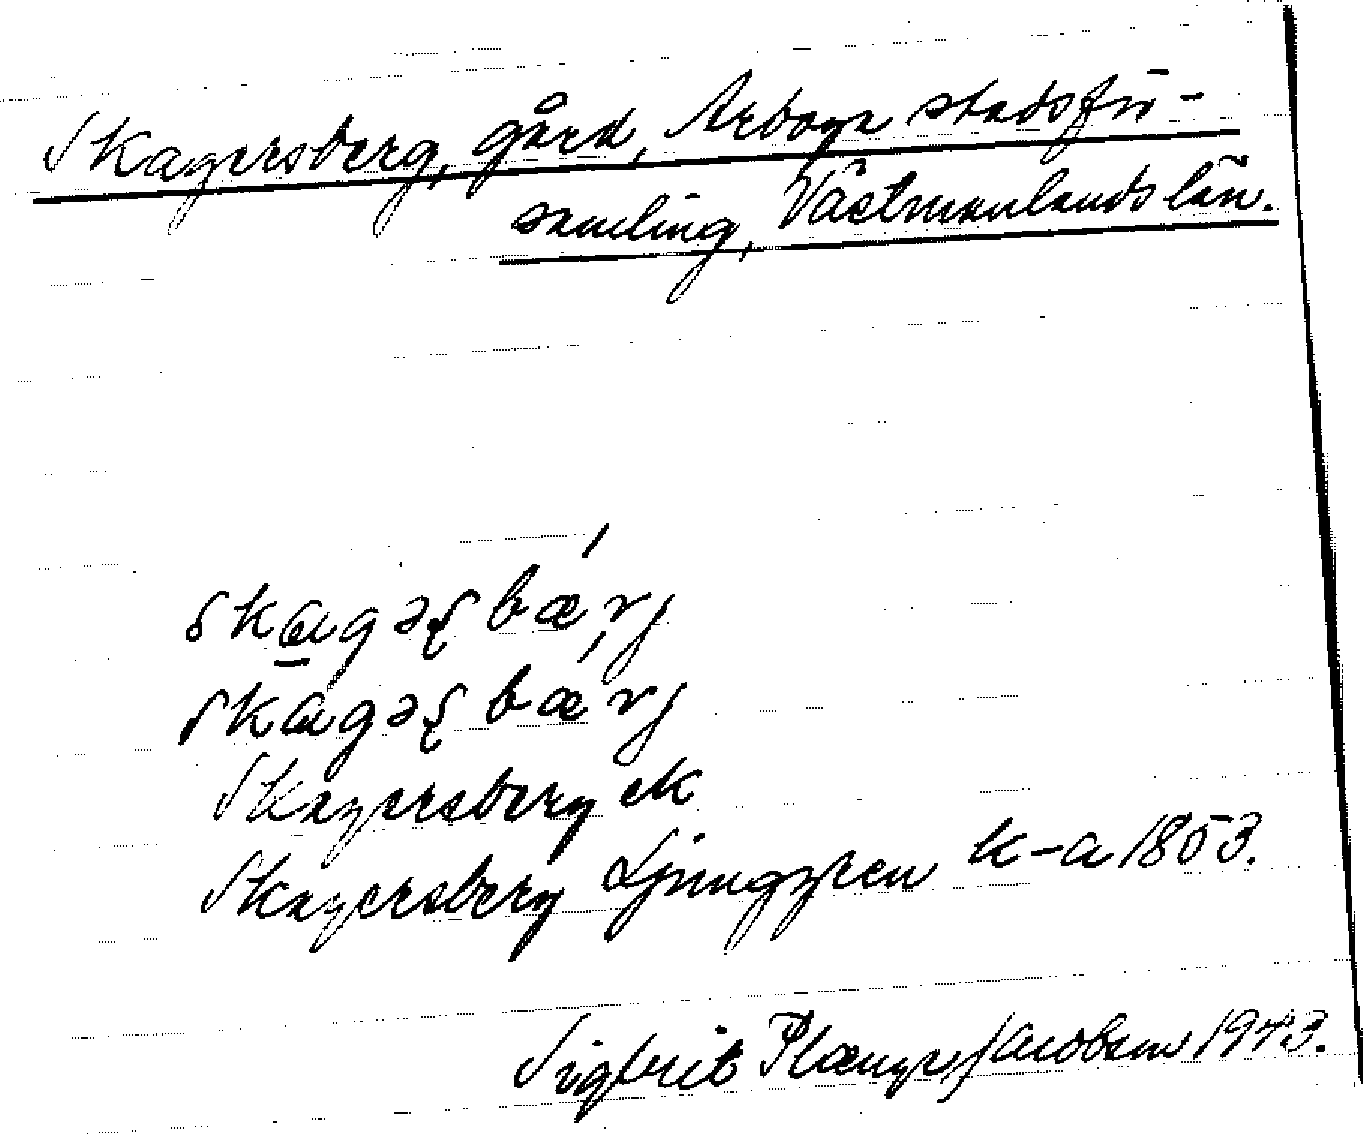 Skagersberg, gård, Arboga stadsför-
samling, Västmanlands län.
skɑ̱gəʂbæ´rj
skɑgəʂbæ´rj
Skagersberg ek
Skagersberg Ljunggren k-a 1853.
Sigbrit Plænge Jacobson 1943.